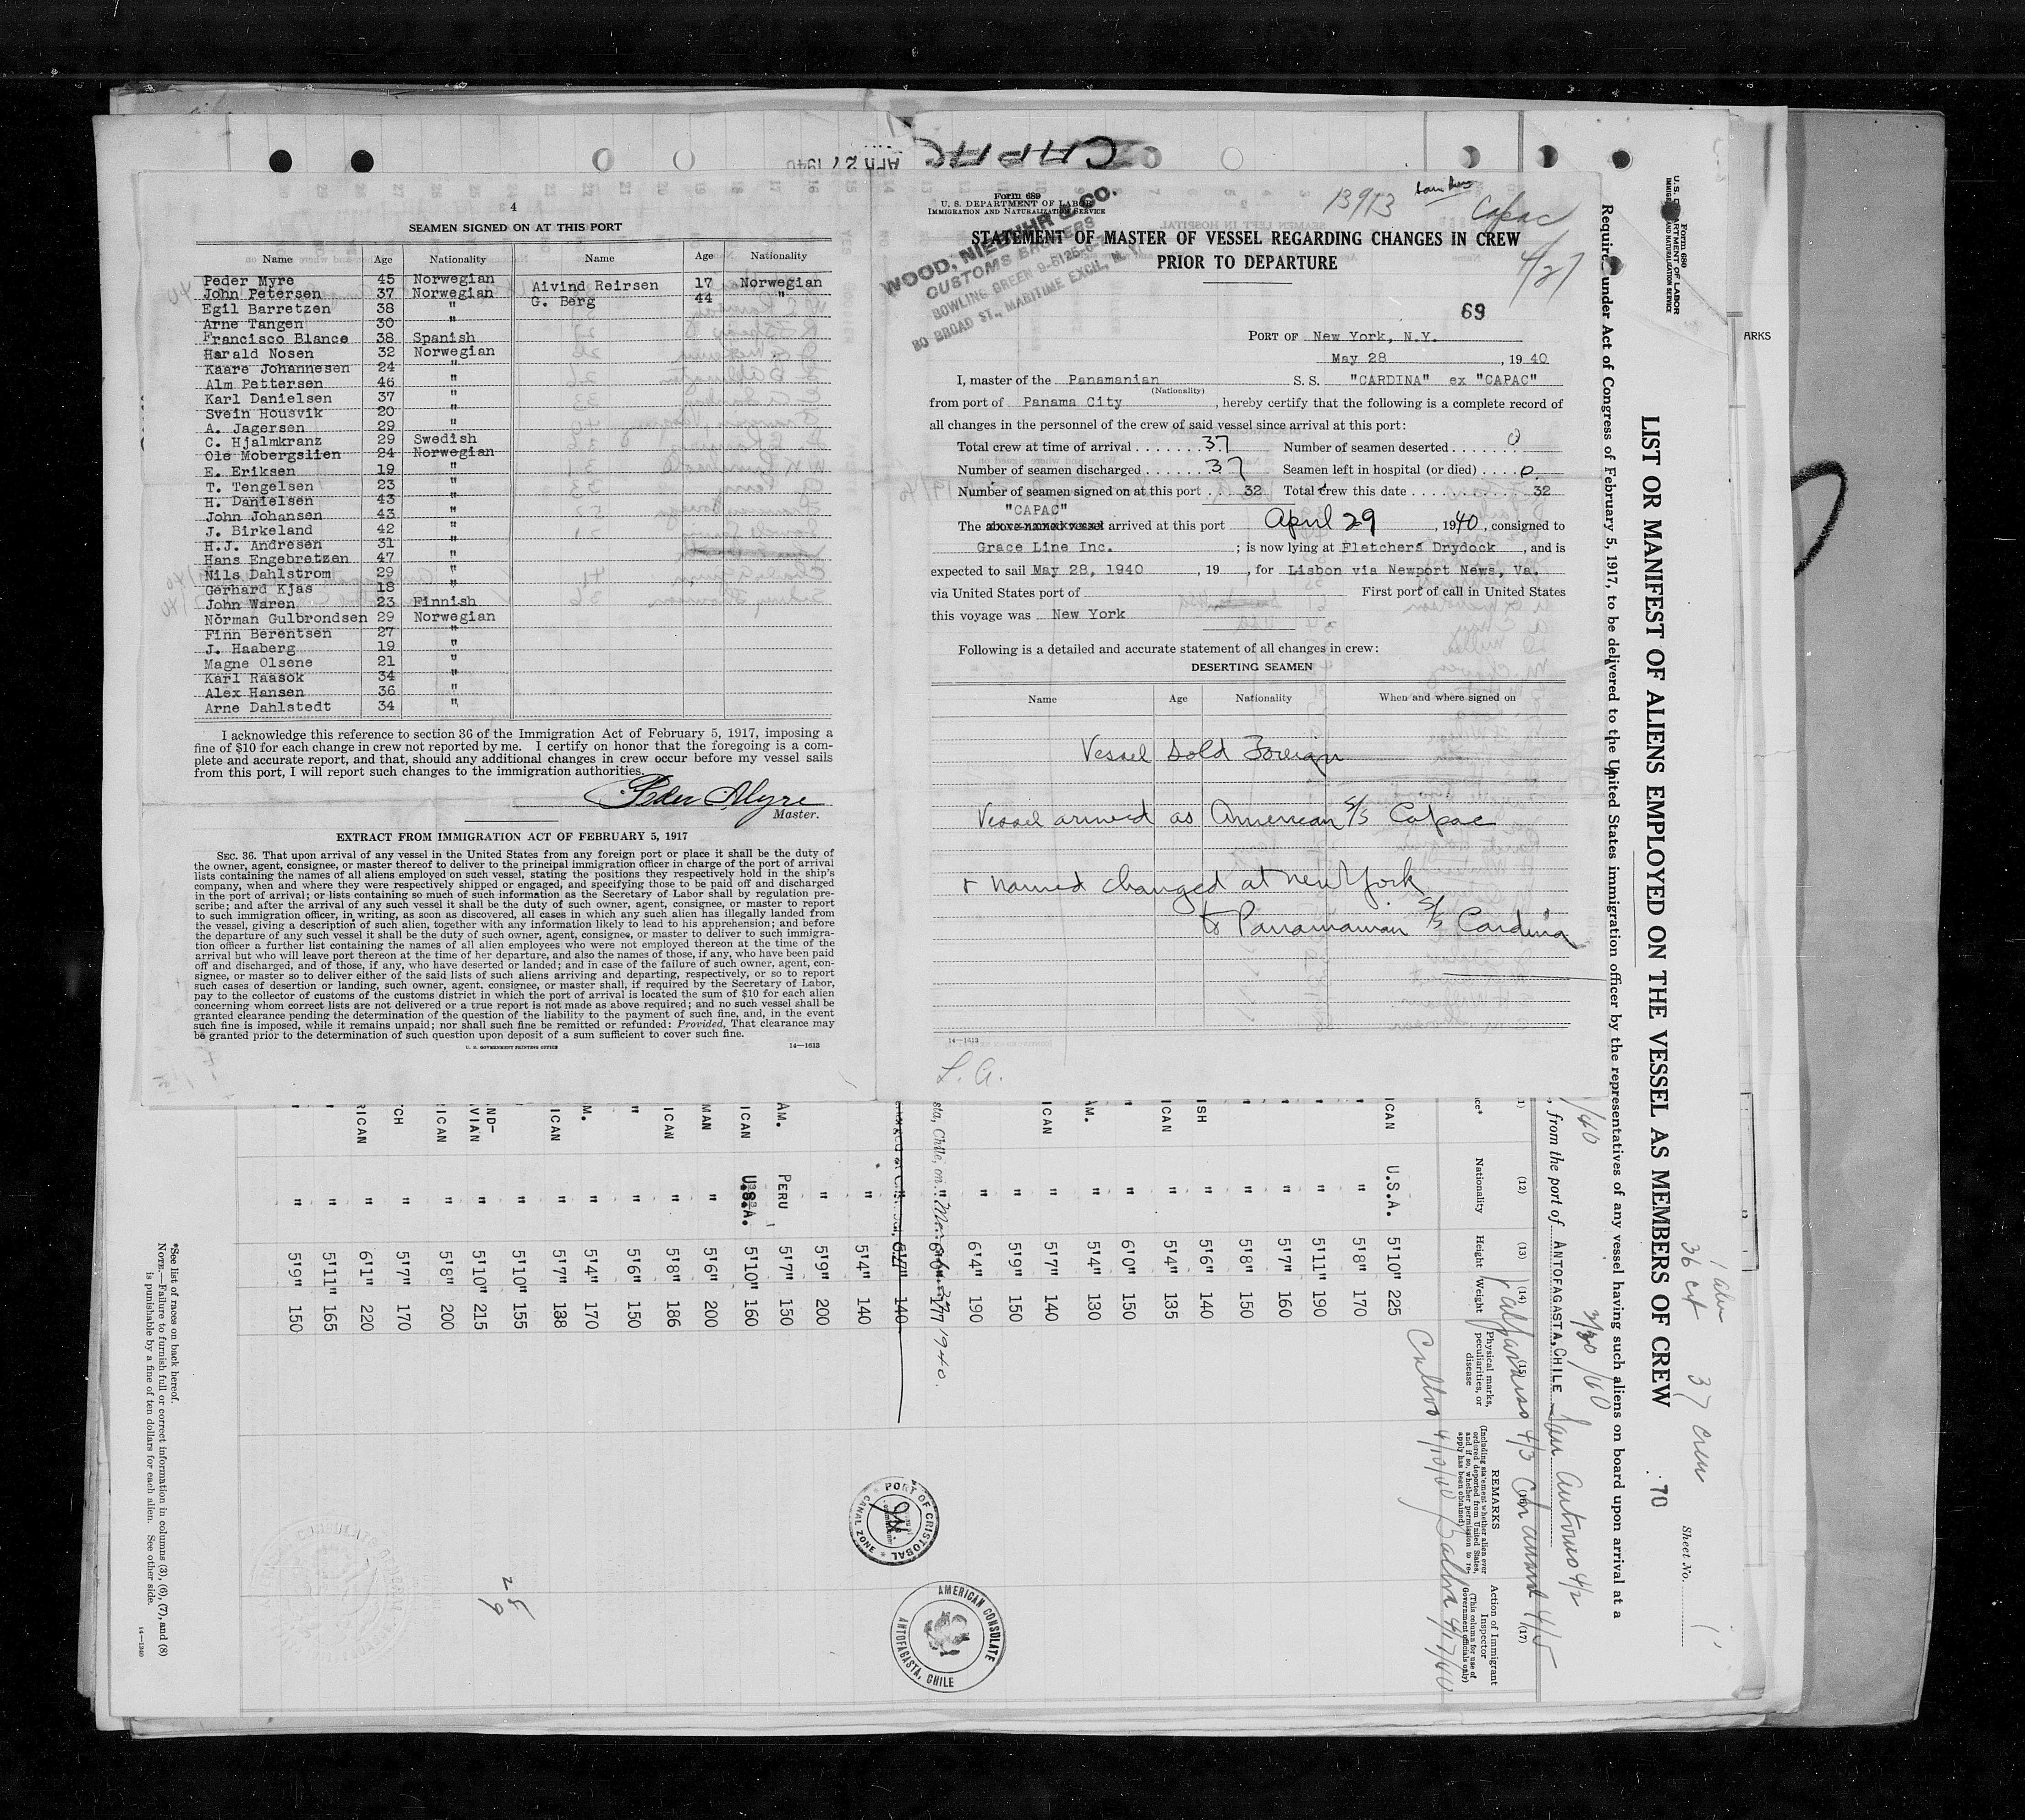 4
SEAMEN SIGNED ON AT THIS PORT
Name Age Nationality Name Age Nationality
Peder Myre 45 Norwegian Aivind Reirsen 17 Norwegian
John Petersen 37 Norwegian G. Berg 44 "
Egil Barretzen 38 "
Arne Tangen 30 "
Francisco Blance 38 Spanish
Harald Nosen 32 Norwegian
Kaare Johannesen 24 "
Alm Pettersen 46 "
Karl Danielsen 37 "
Svein Housvik 20 "
A. Jagersen 29 "
C. Hjalmkranz 29 Swedish
Ole Mobergslien 24 Norwegian
E. Eriksen 19 "
T. Tengelsen 23 "
H. Danielsen 43 "
John Johansen 43 "
J. Birkeland 42 "
H.J. Andresen 31 "
Hans Engebretzen 47 "
Nils Dahlstrom 29 "
Gerhard Kjas 18 "
John Waren 23 Finnish
Norman Gulbrondsen 29 Norwegian
Finn Berentsen 27 "
J. Haaberg 19 "
Magne Olsene 21 "
Karl Raasok 34 "
Alex Hansen 36 "
Arne Dahlstedt 34 "
I acknowledge this reference to section 36 of the Immigration Act of February 5, 1917, imposing a
fine of $10 for each change in crew not reported by me. I certify on honor that the foregoing is a com-
plete and accurate report, and that, should any additional changes in crew occur before my vessel sails
from this port, I will report such changes to the immigration authorities.
Peder Myre
Master.
EXTRACT FROM IMMIGRATION ACT OF FEBRUARY 5, 1917
SEC. 36. That upon arrival of any vessel in the United States from any foreign port or place it shall be the duty of
the owner, agent, consignee, or master thereof to deliver to the principal immigration officer in charge of the port of arrival
lists containing the names of all aliens employed on such vessel, stating the positions they respectively hold in the ship's
company, when and where they were respectively shipped or engaged, and specifying those to be paid off and discharged
in the port of arrival; or lists containing so much of such information as the Secretary of Labor shall by regulation pre-
scribe; and after the arrival of any such vessel it shall be the duty of such owner, agent, consignee, or master to report
to such immigration officer, in writing, as soon as discovered, all cases in which any such alien has illegally landed from
the vessel, giving a description of such alien, together with any information likely to lead to his apprehension; and before
the departure of any such vessel it shall be the duty of such owner, agent, consignee, or master to deliver to such immigra-
tion officer a further list containing the names of all alien employees who were not employed thereon at the time of the
arrival but who will leave port thereon at the time of her departure, and also the names of those, if any, who have been paid
off and discharged, and of those, if any, who have deserted or landed; and in case of the failure of such owner, agent, con-
signee, or master so to deliver either of the said lists of such aliens arriving and departing, respectively, or so to report
such cases of desertion or landing, such owner, agent, consignee, or master shall, if required by the Secretary of Labor,
pay to the collector of customs of the customs district in which the port of arrival is located the sum of $10 for each alien
concerning whom correct lists are not delivered or a true report is not made as above required; and no such vessel shall be
granted clearance pending the determination of the question of the liability to the payment of such fine, and, in the event
such fine is imposed, while it remains unpaid; nor shall such fine be remitted or refunded: Provided, That clearance may
be granted prior to the determination of such question upon deposit of a sum sufficient to cover such fine.
U. S. GOVERNMENT PRINTING OFFICE 14—1613
CAPAC
APR 27 1940
Form 689
U. S. DEPARTMENT OF LABOR
IMMIGRATION AND NATURALIZATION SERVICE
13913
Capac
4/27
WOOD, NIEBUHR & CO.
CUSTOMS BROKERS
BOWLING GREEN 9-6125-6-7
80 BROAD ST., MARITIME EXCH., N. Y.
STATEMENT OF MASTER OF VESSEL REGARDING CHANGES IN CREW
PRIOR TO DEPARTURE
69
PORT OF New York, N.Y.
May 28, 1940
I, master of the Panamanian S. S. "CARDINA" ex "CAPAC"
(Nationality)
from port of Panama City, hereby certify that the following is a complete record of
all changes in the personnel of the crew of said vessel since arrival at this port:
Total crew at time of arrival 37 Number of seamen deserted 0
Number of seamen discharged 37 Seamen left in hospital (or died) 0
Number of seamen signed on at this port 32 Total crew this date 32
"CAPAC"
The above-named vessel arrived at this port April 29, 1940, consigned to
Grace Line Inc. ; is now lying at Fletchers Drydock, and is
expected to sail May 28, 1940, 19 , for Lisbon via Newport News, Va.
via United States port of First port of call in United States
this voyage was New York
Following is a detailed and accurate statement of all changes in crew:
DESERTING SEAMEN
Name Age Nationality When and where signed on
Vessel sold Foreign
Vessel arrived as American S/S Capac
+ named changed at New York
to Panamanian S/S Cardina
14—1613
L. A.
Form 680
U. S. DEPARTMENT OF LABOR
IMMIGRATION AND NATURALIZATION SERVICE
ARKS
LIST OR MANIFEST OF ALIENS EMPLOYED ON THE VESSEL AS MEMBERS OF CREW
70
Sheet No.
36 cit 37 crew
Required under Act of Congress of February 5, 1917, to be delivered to the United States immigration officer by the representatives of any vessel having such aliens on board upon arrival at a
, from the port of ANTOFAGASTA, CHILE San Antonio 4/2
3/30/40
Valparaiso 4/3
(12) (13) (14) (15) (16) (17)
Nationality Height Weight Physical marks, peculiarities, or disease
REMARKS
(Including statement whether alien ever
ordered deported from United States,
and if so, whether permission to re-
apply has been obtained)
Action of Immigrant Inspector
(This column for use of
Government officials only)
ICAN U.S.A. 5'10" 225
" " 5'8" 170
" " 5'11" 190
" " 5'7" 160
" " 5'8" 150
ISH " 5'6" 140
ICAN " 5'4" 135
" " 6'0" 150
AM. " 5'4" 130
ICAN " 5'7" 140
" 5'9" 150
" 6'4" 190
" 6'0" 177
sta, Chile, on 1940.
5'7" 140
" 5'4" 140
" 5'9" 200
AM. PERU 5'7" 150
ICAN U.S.A. 5'10" 160
MAN " 5'6" 200
ICAN " 5'8" 186
" " 5'6" 150
M. " 5'4" 170
ICAN " 5'7" 188
" 5'10" 155
AND-
VIAN " 5'10" 215
ICAN " 5'8" 200
TCH " 5'7" 170
RICAN " 6'1" 220
" " 5'11" 165
" " 5'9" 150
PORT OF CRISTOBAL
CANAL ZONE
AMERICAN CONSULATE
ANTOFAGASTA, CHILE
*See list of races on back hereof.
NOTE.—Failure to furnish full or correct information in columns (3), (6), (7), and (8)
is punishable by a fine of ten dollars for each alien. See other side.
14—1240